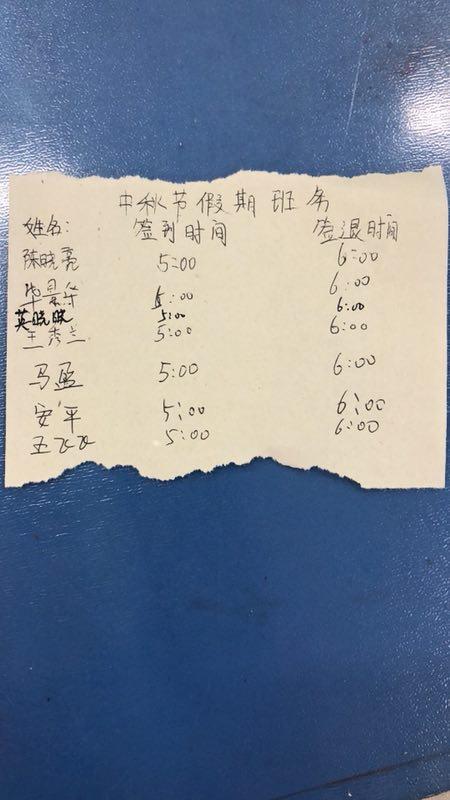 中秋节假期班务
姓名: 签到时间 签退时间
陈晓亮 5:00 6:00
毕景华 5:00 6:00
英晓晓 5:00 6:00
王秀兰 5:00 6:00
马盈 5:00 6:00
安平 5:00 6:00
5:00 6:00